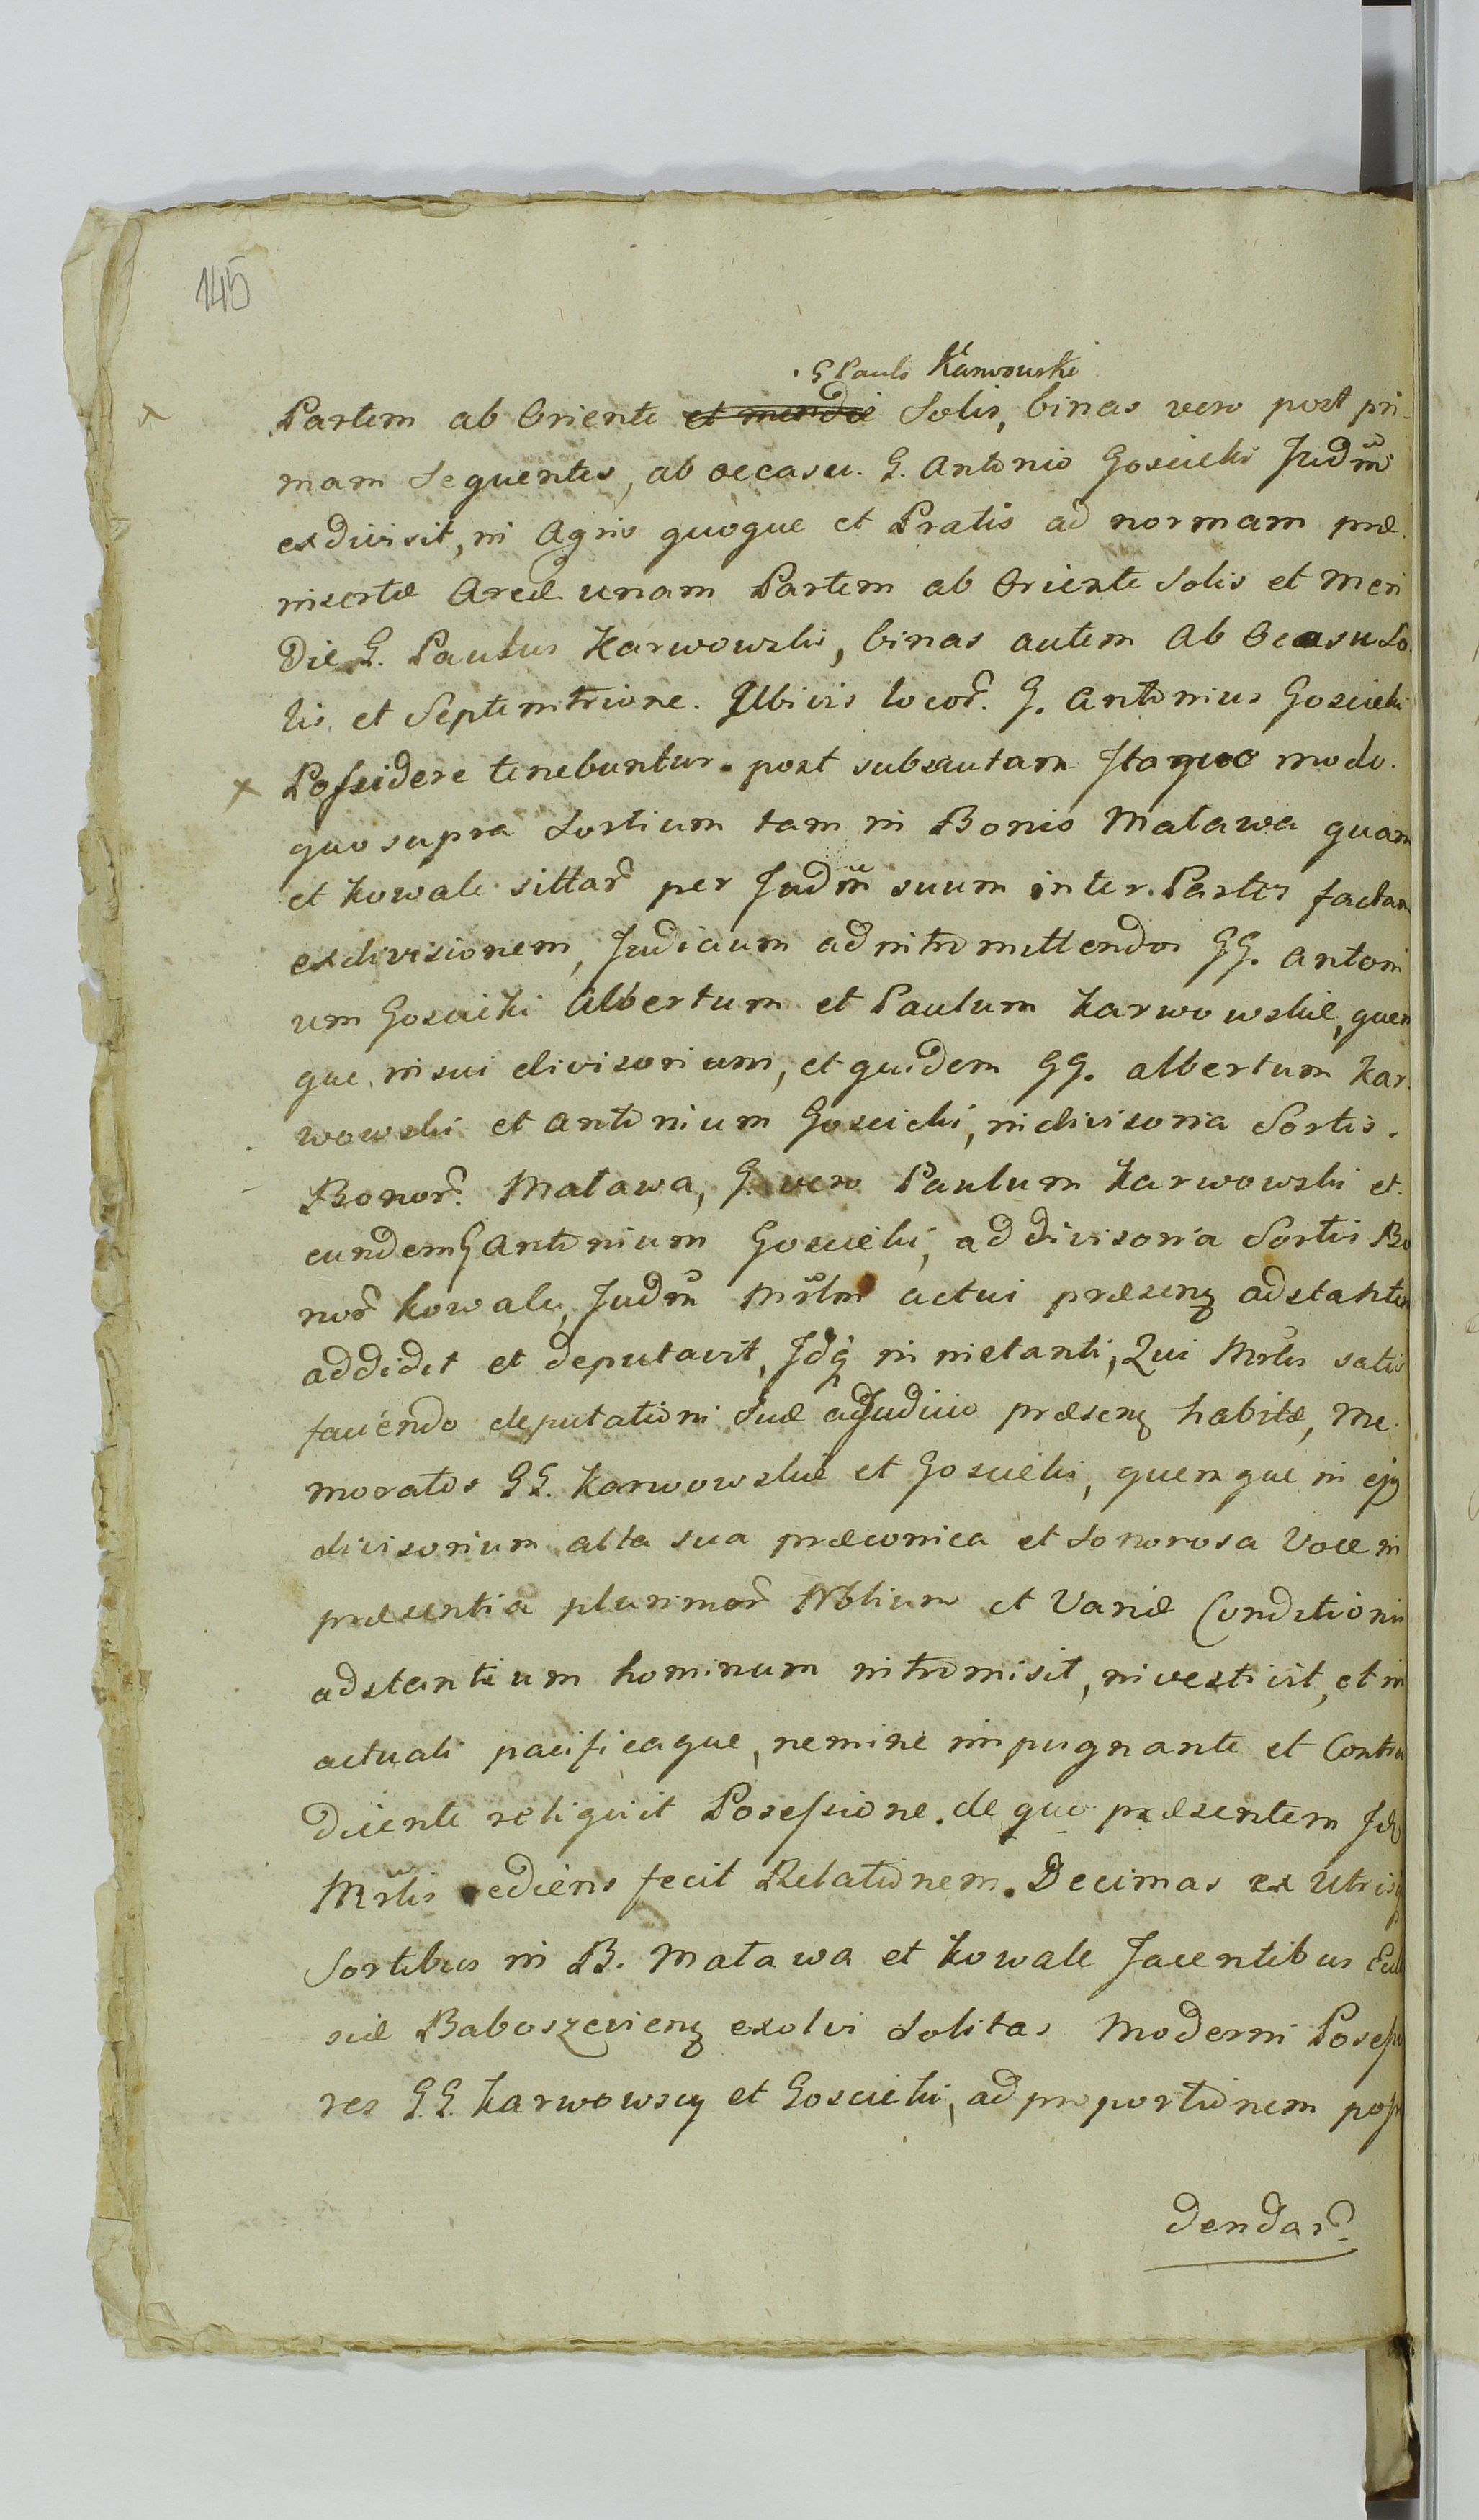 145
G Paulo Karwowski
Partem ab Oriente et meridie Solis, binas vero post pri-
mam sequentes, ab occasu. G. Antonio Goscicki Judm̃
exdivisit, in Agris quoque et Pratis ad normam præ
insertæ Areæ unam Partem ab Oriente Solis et Meri
die G. Paulus Karwowski, binas autem Ab Occasu So
lis et Septemtrione. Ubivis locor̃. G. Antonius Goscicki
Possidere tenebuntur. post subsecutam Itaque modo.
quo supra Sortium tam in Bonis Malawa quam
et Kowale sittar̃ per Judm̃ suum inter Partes factam
exdivisionem, Judicium ad intromittendos GG. Antoni
um Goscicki Albertum et Paulum Karwowskie, quem
que in sui divisorium, et quidem GG. Albertum Kar
wowski et Antonium Goscicki, in divisoria Sortis.
Bonor̃. Malawa, G. vero Paulum Karwowski et
eundem G Antonium Goscicki, ad divisoria Sortis Bo
nor̃ Kowale, Judm̃ Mrlm̃ actui præsenꝫ adstantem
addidit et deputavit, Idꝗ in instanti, Qui Mrl̃is satis
faciendo deputationi Suæ a Judicio præsenꝫ habitæ, Me
moratos GG. Karwowskie et Goscicki, quemque in ejꝫ
divisorium alta sua præconica et Sonorosa Voce in
præsentia plurimor̃ Nblium et Variæ Conditionis
adstantium hominum intromisit, investivit, et in
actuali pacificaque, nemine impugnante et Contra
dicente reliquit Possessione. de quo præsentem Id
Mrl̃is rediens fecit Relationem. Decimas ex Utrisꝗ
Sortibus in B. Malawa et Kowale Jacentibus Eccle
siæ Baboszevienꝫ exolvi Solitas Moderni Possesso
res G.G. Karwowscy et Goscicki, ad proportionem possi
dendar̃